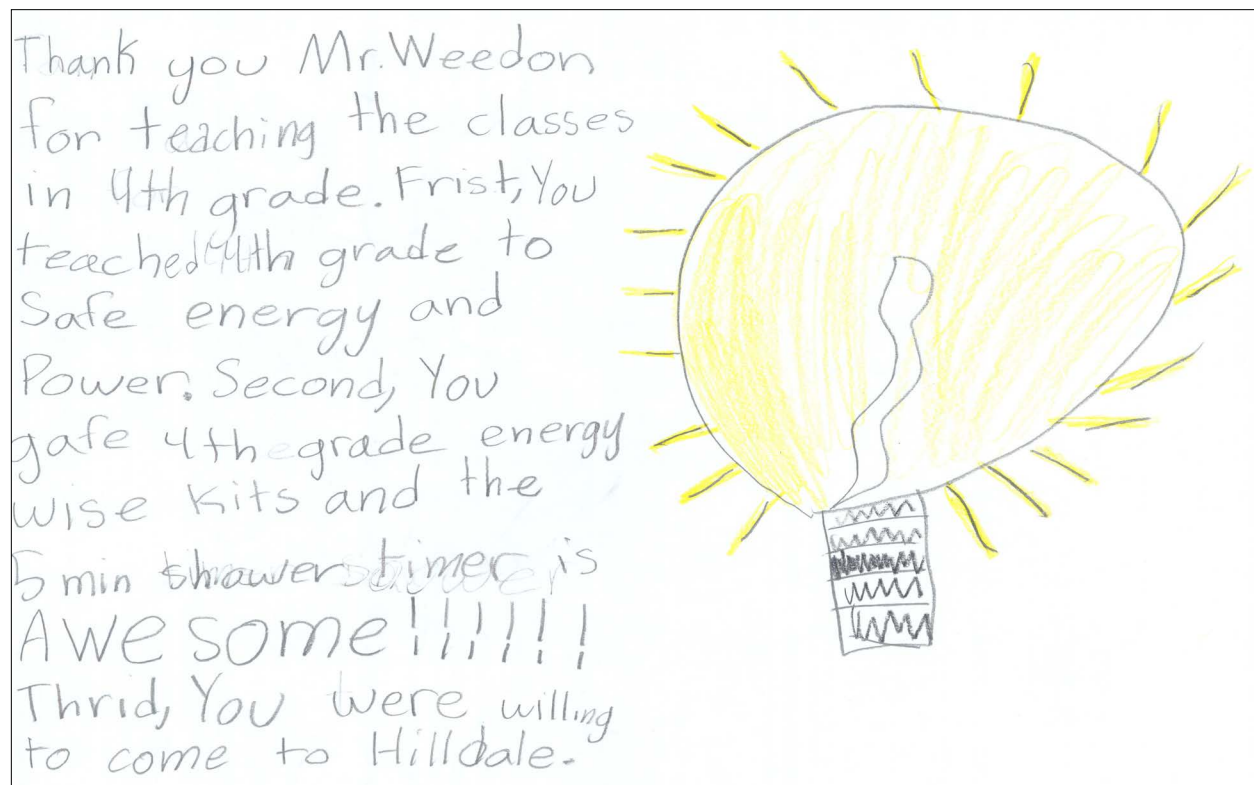 Thank you Mr. Weedon
for teaching the classes
in 4th grade. Frist, You
teached 4th grade to
Safe energy and
Power. Second, You
gafe 4th grade energy
wise kits and the
5 min shawer timer is
Awesome!!!!!!
Thrid, You were willing
to come to Hilldale.